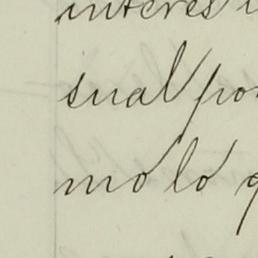 interes
sual po
mo lo q